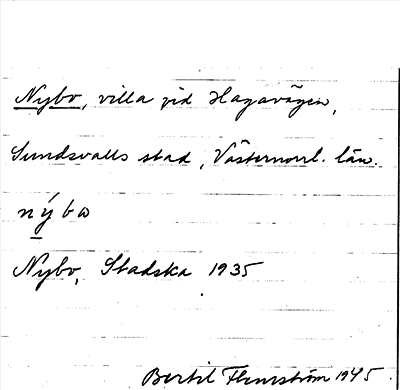 Nybo, villa vid Hagavägen,
Sundsvalls stad, Västernorrl. län.
nýbo
Nybo, Stadska 1935
Bertil Flemström 1945